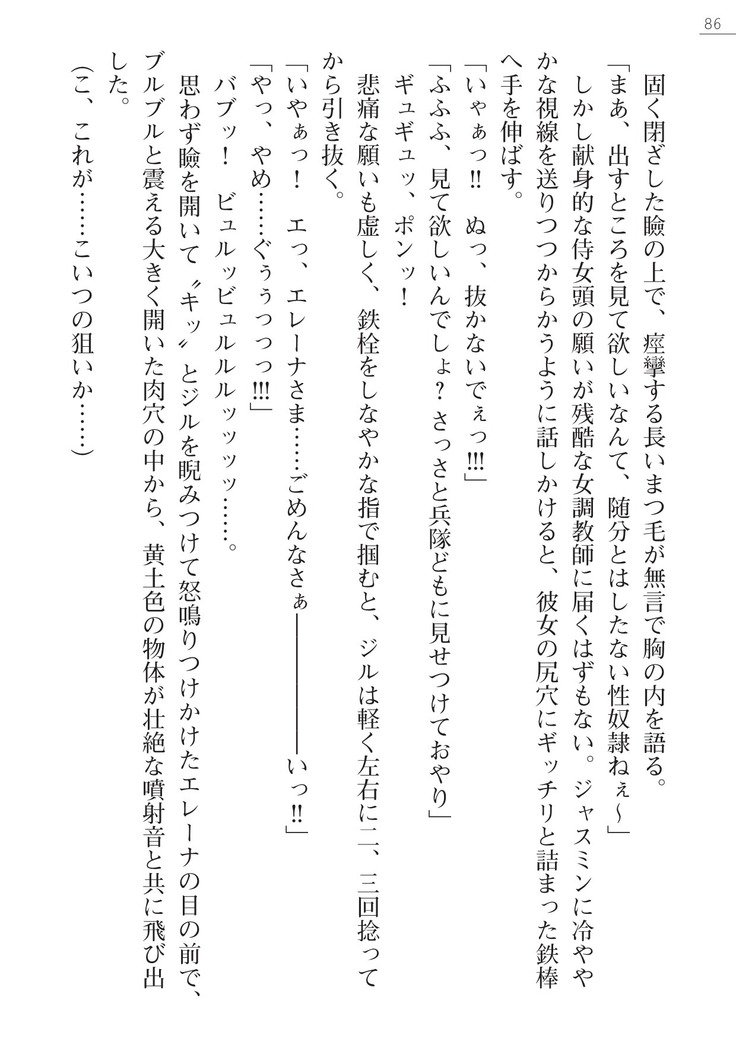 86
固く閉ざした瞼の上で、痙攣する長いまつ毛が無言で胸の内を語る。
「まあ、出すところを見て欲しいなんて、随分とはしたない性奴隷ねぇ～」
しかし献身的な侍女頭の願いが残酷な女調教師に届くはずもない。ジャスミンに冷やや
かな視線を送りつつからかうように話しかけると、彼女の尻穴にギッチリと詰まった鉄棒
へ手を伸ばす。
「いゃぁっ!!　ぬっ、抜かないでぇっ!!!」
「ふふふ、見て欲しいんでしょ？さっさと兵隊どもに見せつけておやり」
ギュギュッ、ポンッ！
悲痛な願いも虚しく、鉄栓をしなやかな指で掴むと、ジルは軽く左右に二、三回捻って
から引き抜く。
「いやぁっ！　エっ、エレーナさま……ごめんなさぁ――――――いっ!!」
「やっ、やめ……ぐぅぅっっっ!!!」
バブッ！　ビュルッビュルルルッッッッ……。
思わず瞼を開いて〝キッ〟とジルを睨みつけて怒鳴りつけかけたエレーナの目の前で、
ブルブルと震える大きく開いた肉穴の中から、黄土色の物体が壮絶な噴射音と共に飛び出
した。
（こ、これが……こいつの狙いか……）